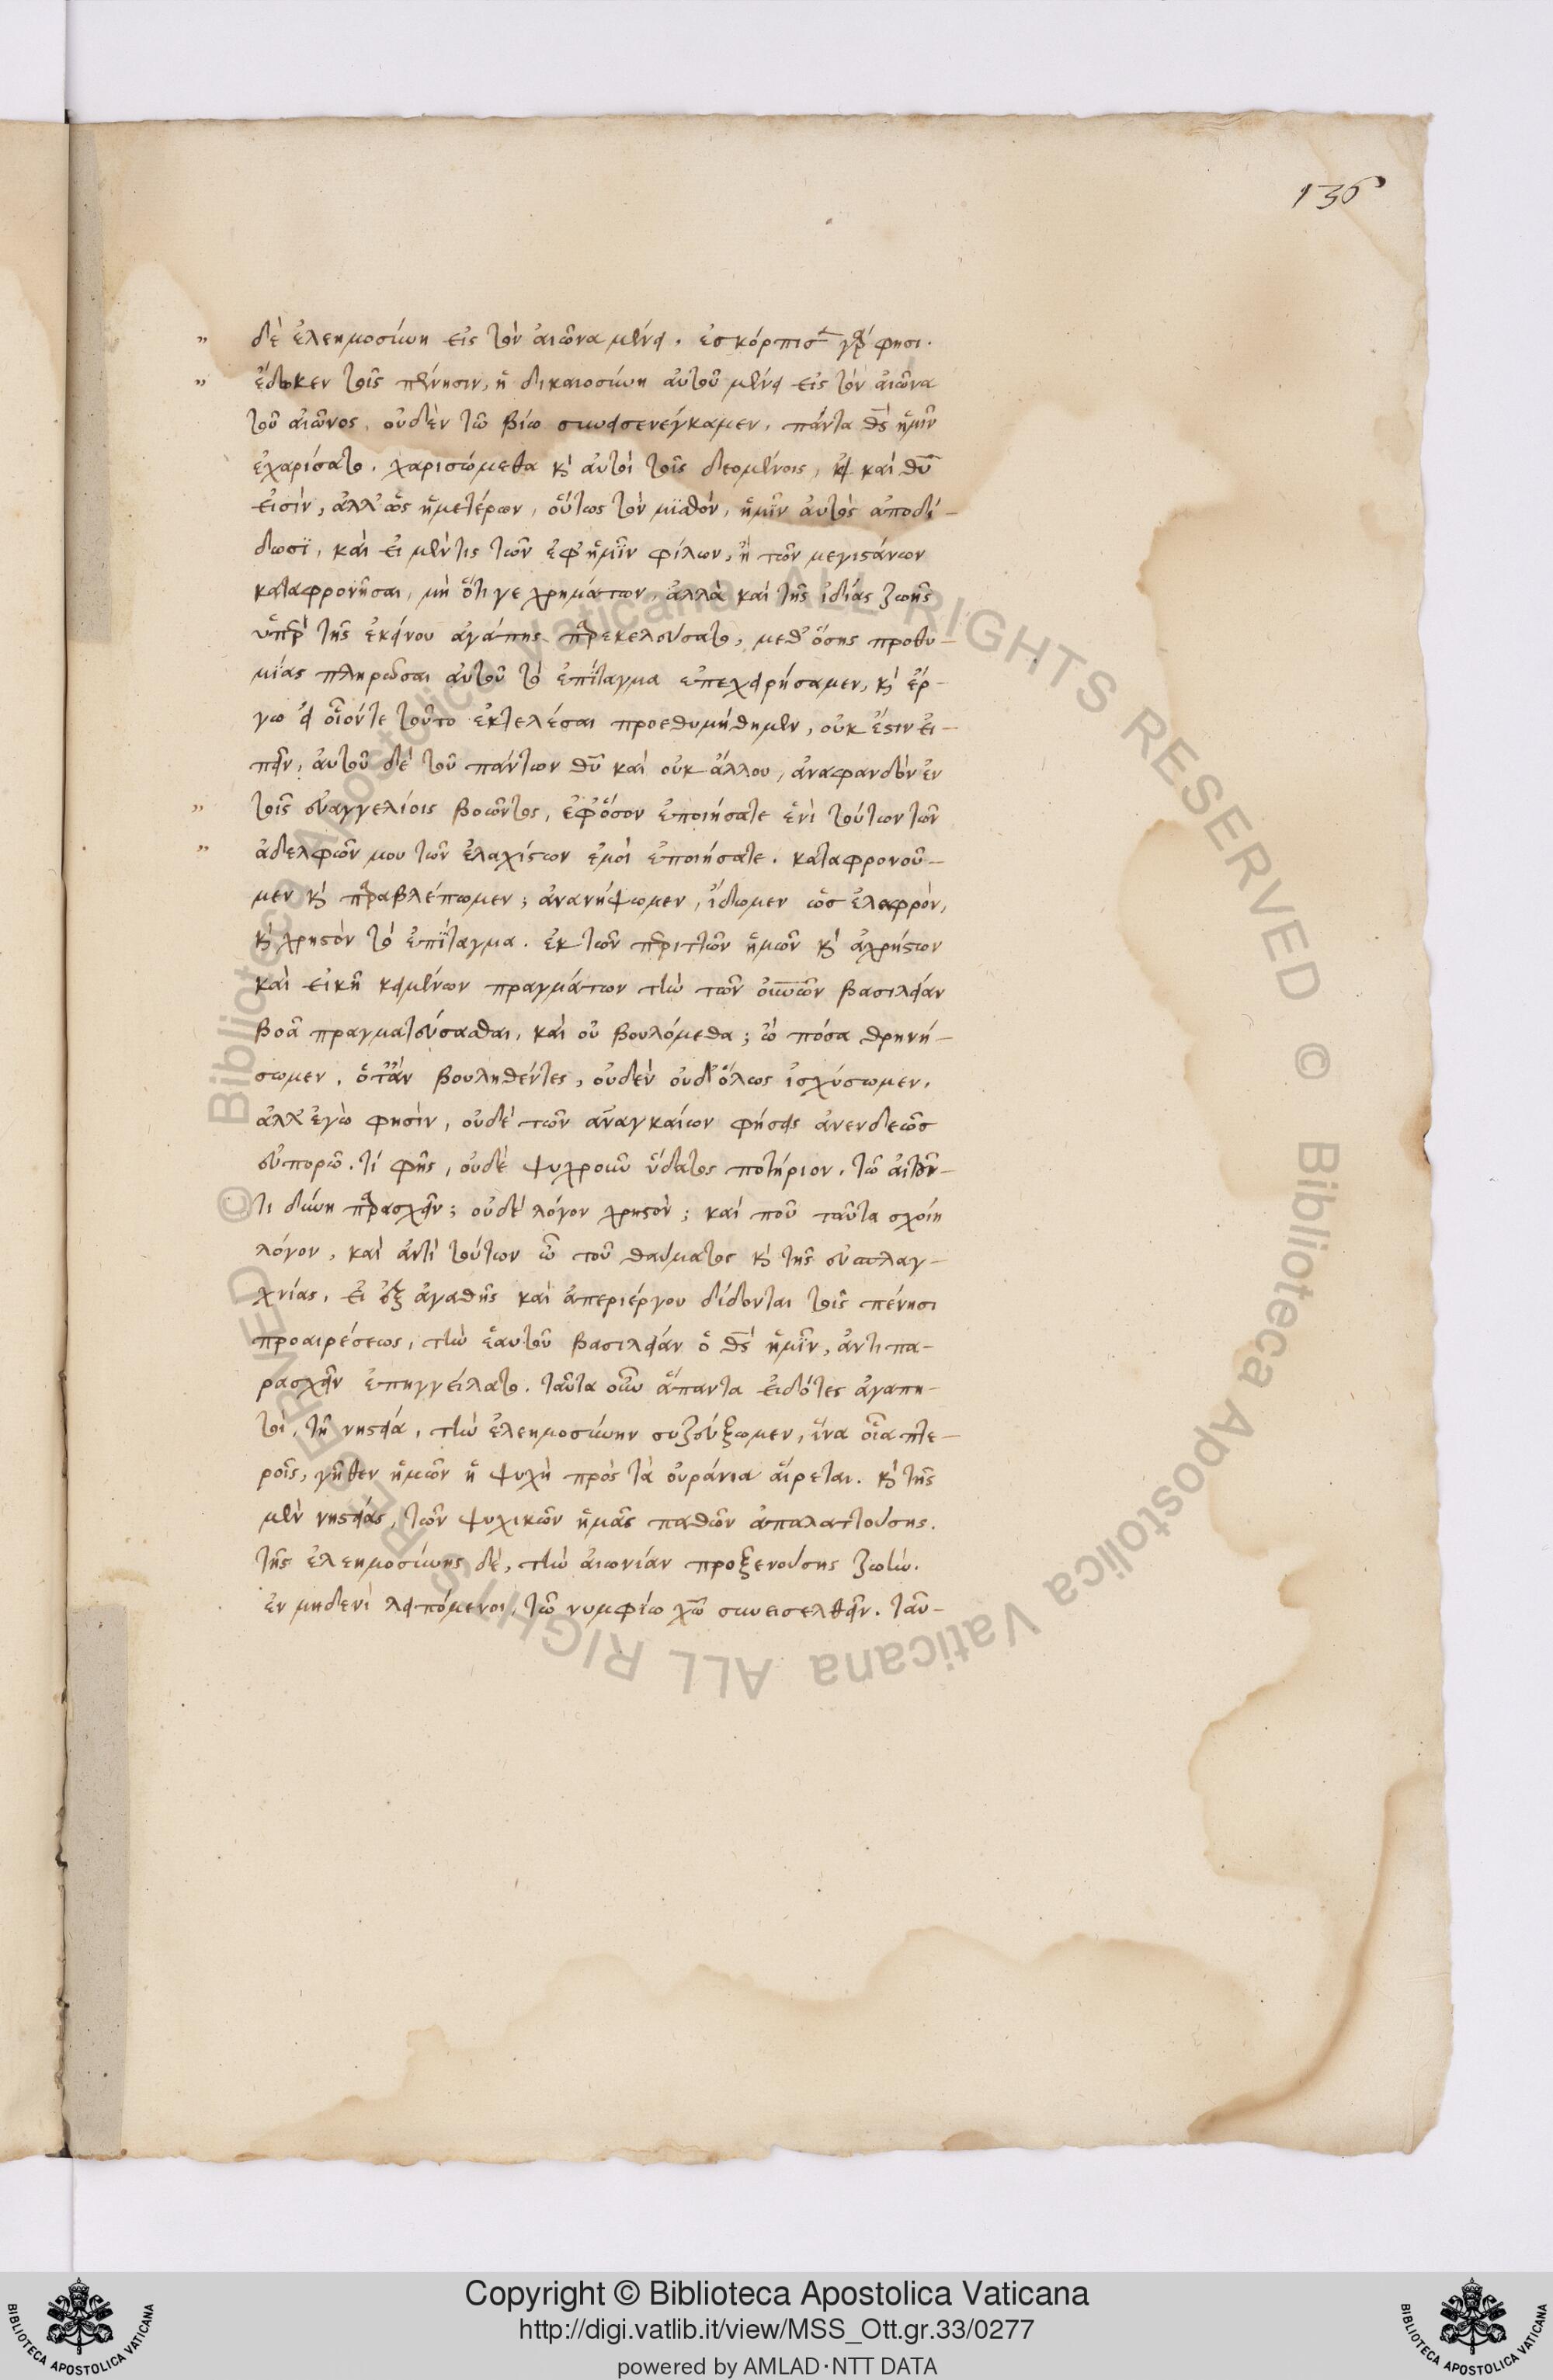 136
" δὲ ἐλεημοσύνη εἰς τὸν αἰῶνα μένει. ἐσκόρπισε γάρ φησι.
" ἔδωκεν τοῖς πένησιν, ἡ δικαιοσύνη αὐτοῦ μένει εἰς τὸν αἰῶνα
τοῦ αἰῶνος. οὐδὲν τῶ βίω συνεισενέγκαμεν. πάντα θς ἡμῖν
ἐχαρίσατο. χαρισώμεθα κ αὐτοὶ τοῖς δεομένοις, καὶ θυ
εἰσὶν, ἀλλ' ὡς ἡμετέρων, οὕτως τὸν μϊσθὸν, ἡμῖν αὐτὸς ἀποδί-
δωσϊ, καὶ εἰ μέν τις τῶν ἐφ' ἡμῖν φίλων, ἢ τῶν μεγιστάνων
καταφρονῆσαι, μὴ ὅτι γε χρημάτων, ἀλλὰ καὶ τῆς ἰδίας ζωῆς
ὑπὲρ τῆς ἐκείνου ἀγάπης παρεκελεύσατο, μεθ' ὅσης προθυ-
μίας πληρῶσαι αὐτοῦ τὸ ἐπίταγμα ἐπεχειρήσαμεν, κ ἔρ-
γω εἰ οἷόν τε τοῦτο ἐκτελέσαι προεθυμήθημεν, οὐκ ἔστιν εἰ-
πεῖν, αὐτοῦ δὲ τοῦ πάντων θυ καὶ οὐκ ἄλλου, ἀναφανδὸν ἐν
" τοῖς εὐαγγελίοις βοῶντος, ἐφ' ὅσον ἐποιήσατε ἑνὶ τούτων τῶν
" ἀδελφῶν μου τῶν ἐλαχίστων ἐμοὶ ἐποιήσατε. καταφρονοῦ-
μεν κ παραβλέπωμεν; ἀνανήψωμεν, ἴδωμεν ὡς ἐλαφρὸν,
κ χρηστὸν τὸ ἐπίταγμα. ἐκ τῶν περιττῶν ἡμῶν κ ἀχρήστων
καὶ εἰκῆ κειμένων πραγμάτων τὴν τῶν οὐνῶν βασιλείαν
βοᾶ πραγματεύσασθαι, καὶ οὐ βουλόμεθα; ὢ πόσα θρηνή-
σωμεν, ὅταν βουληθέντες, οὐδὲν οὐδ' ὅλως ἰσχύσωμεν.
ἀλλ' ἐγὼ φησὶν, οὐδὲ τῶν ἀναγκαίων φήσεις ἀνενδεῶς
εὐπορῶ. τί φῆς, οὐδὲ ψυχροῦ ὕδατος ποτήριον. τῶ αἰτοῦν-
τι δύνη παρασχεῖν; οὐδὲ λόγον χρηστὸν; καὶ ποῦ ταῦτα σχοίη
λόγον, καὶ ἀντὶ τούτων ὢ τοῦ θαύματος κ τῆς εὐσπλαγ-
χνίας, εἰ ἐξ ἀγαθῆς καὶ ἀπεριέργου δίδονται τοῖς πένησι
προαιρέσεως, τὴν ἑαυτοῦ βασιλείαν ὁ θς ἡμῖν, ἀντιπα-
ρασχεῖν ἐπηγγείλατο. ταῦτα οὖν ἅπαντα εἰδότες ἀγαπη-
τοὶ, τῆ νηστεία, τὴν ἐλεημοσύνην συζεύξωμεν, ἵνα οἷα πτε-
ροῖς, γῆθεν ἡμῶν ἡ ψυχὴ πρὸς τὰ οὐράνια αἵρεται. κ τῆς
μὲν νηστείας, τῶν ψυχικῶν ἡμᾶς παθῶν ἀπαλαττούσης.
τῆς ἐλεημοσύνης δὲ, τὴν αἰωνίαν προξενούσης ζωὴν.
ἐν μηδενὶ λειπόμενοι, τῶ νυμφίω χω συνεισελθεῖν. ταύ-
Copyright © Biblioteca Apostolica Vaticana
http://digi.vatlib.it/view/MSS_Ott.gr.33/0277
powered by AMLAD·NTT DATA
BIBLIOTECA APOSTOLICA VATICANA
BIBLIOTECA APOSTOLICA VATICANA
© Biblioteca Apostolica Vaticana ALL RIGHTS RESERVED © Biblioteca Apostolica Vaticana ALL RIGHTS RESERVED